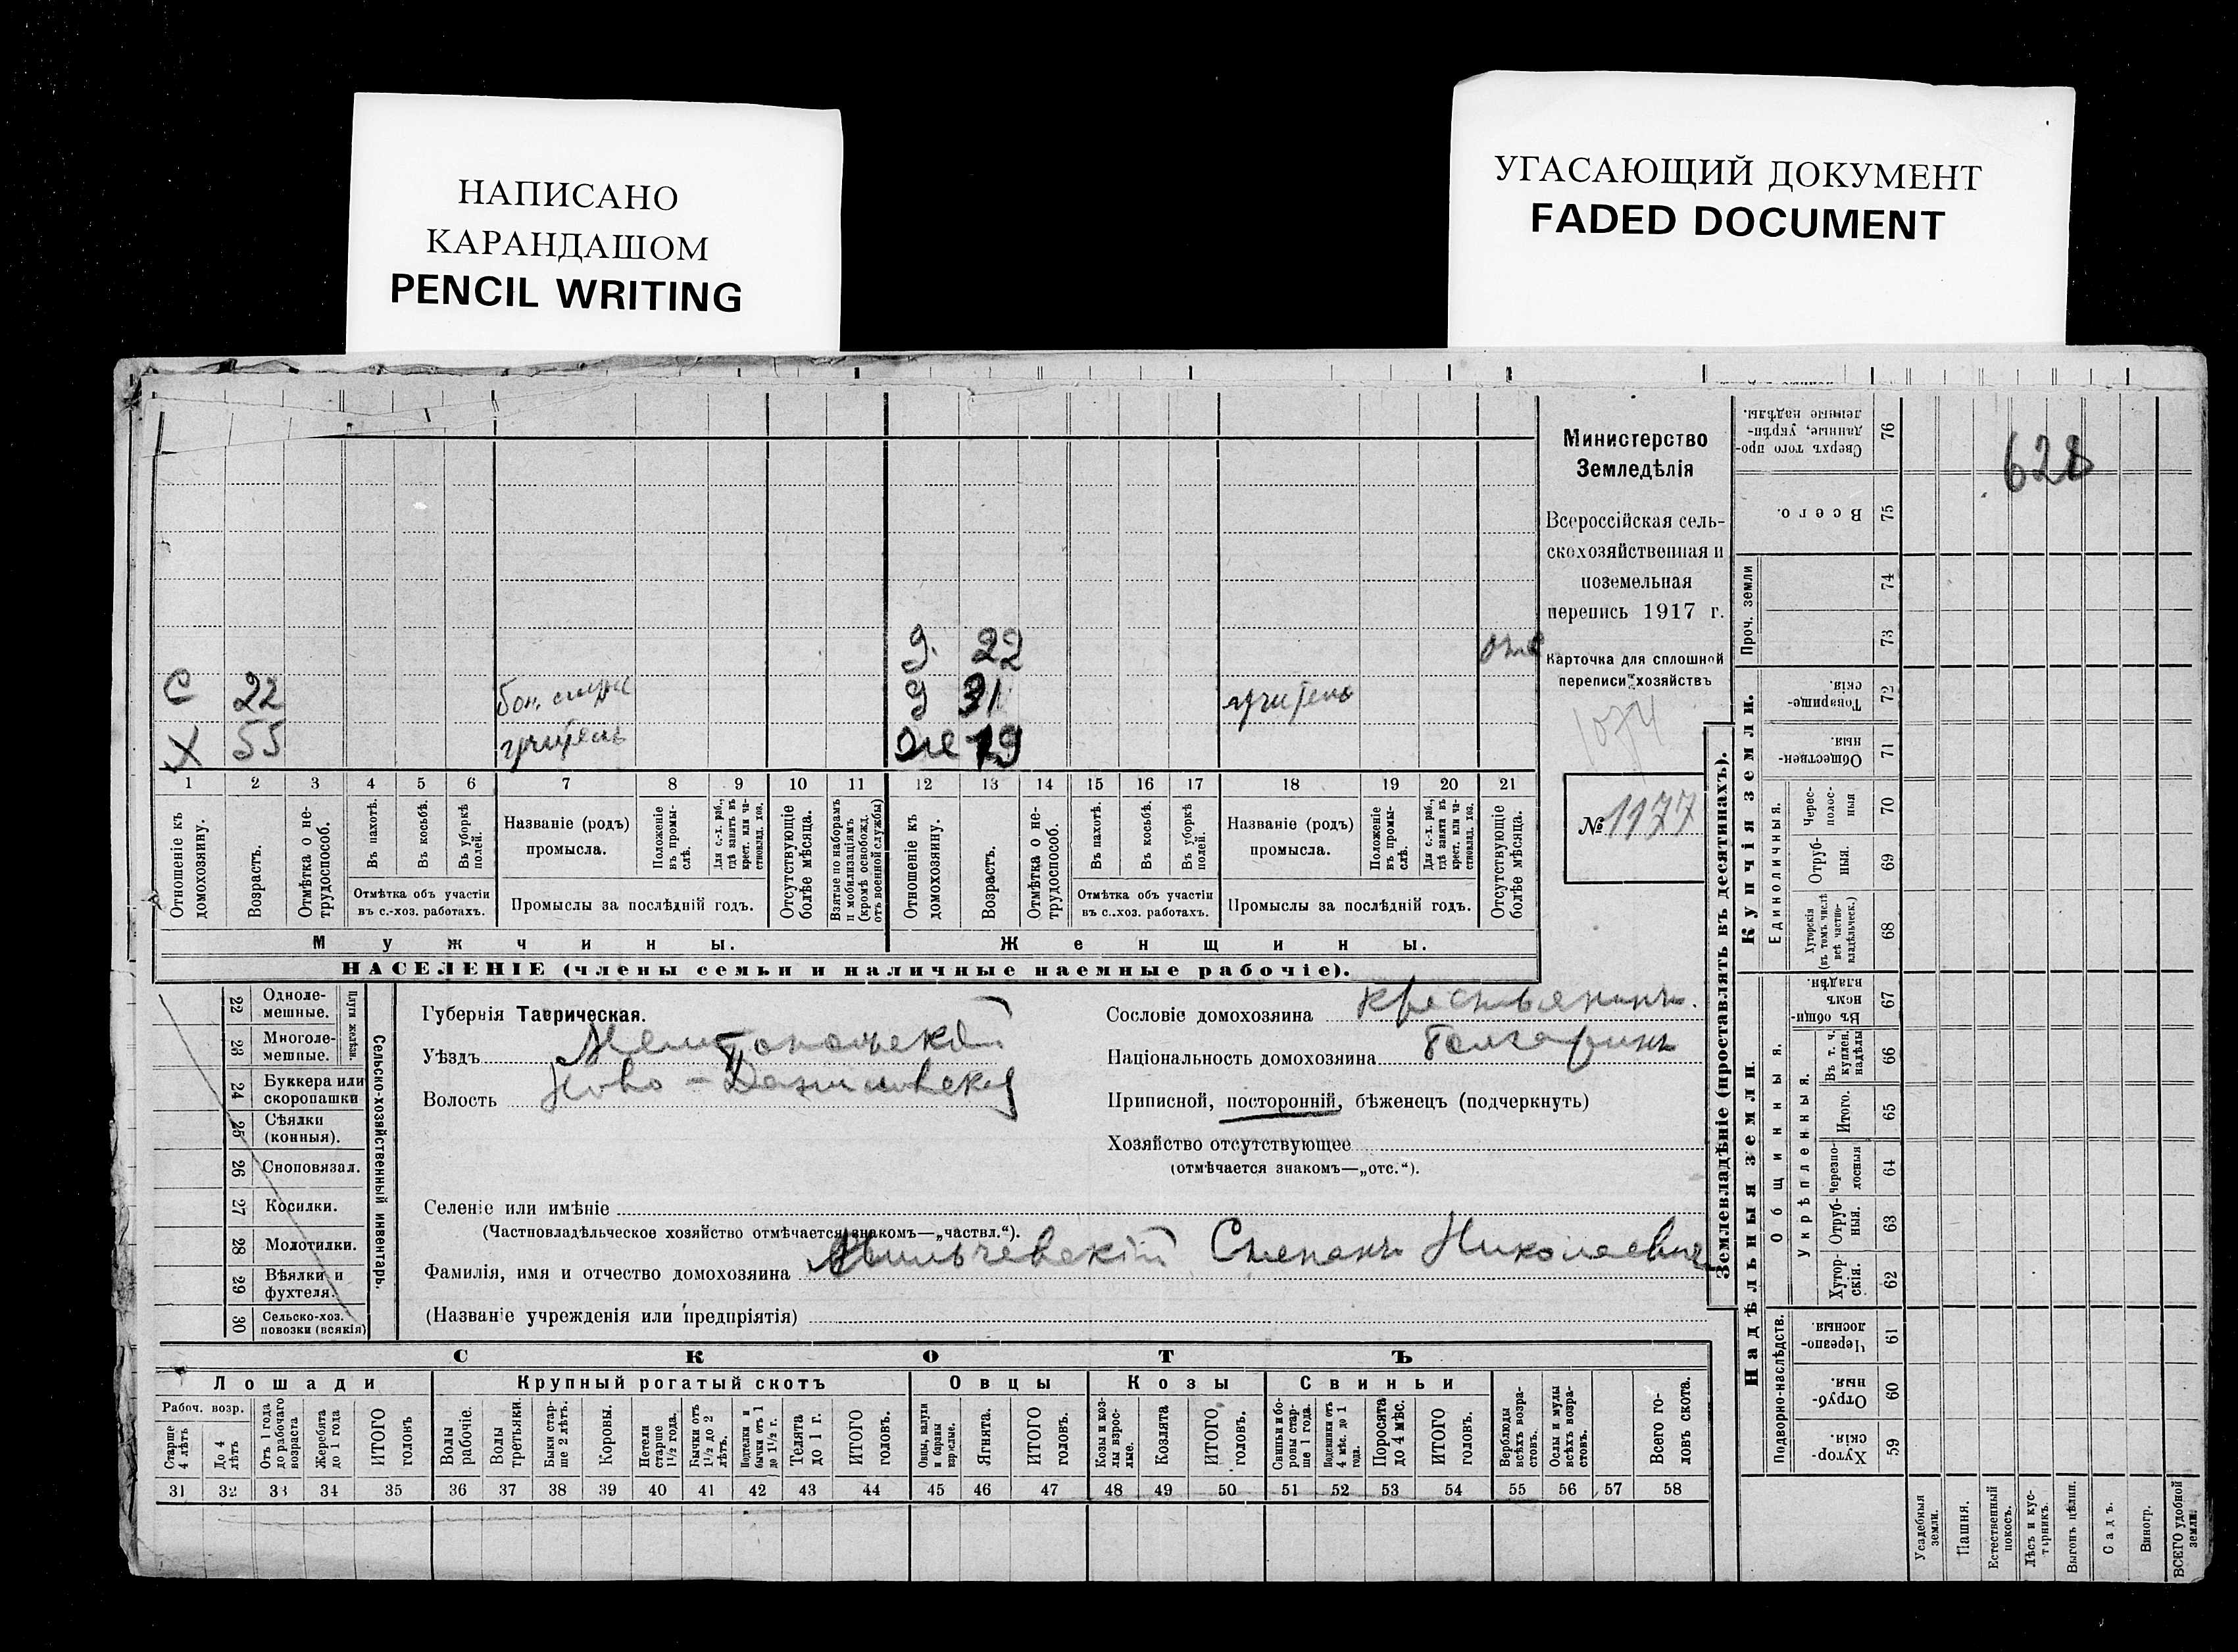 НАПИСАНО
КАРАНДАШОМ
PENCIL WRITING
УГАСАЮЩИЙ ДОКУМЕНТ
FADED DOCUMENT
628
Министерство
Земледѣлія
Всероссійская сель-
скохозяйственная и
поземельная
перепись 1917 г.
Карточка для сплошной
переписи хозяйствъ
1074
№ 1177
д. 22 отс
С 22 д 31 учитель
Х 55 учитель
1 2 3 4 5 6 7 8 9 10 11 12 13 14 15 16 17 18 19 20 21
Отношеніе къ домохозяину.
Возрастъ.
Отмѣтка о не-трудоспособ.
Въ пахотѣ.
Въ косьбѣ.
Въ уборкѣ полей.
Отмѣтка объ участіи
въ с.-хоз. работахъ.
Названіе (родъ)
промысла.
Положеніе въ промы-слѣ.
Для с.-х. раб., гдѣ занятъ въ крест. или ча-ствовлад. хоз.
Промыслы за послѣдній годъ.
Отсутствующіе болѣе мѣсяца.
Взятые по наборамъ и мобилизаціямъ (кромѣ освобожд. отъ военной службы)
Отношеніе къ домохозяину.
Возрастъ.
Отмѣтка о не-трудоспособ.
Въ пахотѣ.
Въ косьбѣ.
Въ уборкѣ полей.
Отмѣтка объ участіи
въ с..хоз. работахъ.
Названіе (родъ)
промысла.
Положеніе въ промы-слѣ.
Для с.-х. раб., гдѣ занята въ крест. или ча-ствовлад. хоз.
Промыслы за послѣдній годъ.
Отсутствующіе болѣе мѣсяца.
Мужчины.
Женщины.
НАСЕЛЕНІЕ (члены семьи и наличные наемные рабочіе).
22 Одноле-мешные.
23 Многоле-мешные.
Плуги желѣзн.
24 Буккера или скоропашки
25 Сѣялки (конныя).
26 Сноповязал.
27 Косилки.
28 Молотилки.
29 Вѣялки и фухтеля.
30 Сельско-хоз. повозки (всякія)
Сельско-хозяйственный инвентарь.
Губернія Таврическая.
Уѣздъ Мелитопольскій
Волость Ново-Даниловская
Сословіе домохозяина крестьянинъ.
Національность домохозяина болгаринъ
Приписной, посторонній, бѣженецъ (подчеркнуть)
Хозяйство отсутствующее
(отмѣчается знакомъ—„отс.“).
Селеніе или имѣніе
(Частновладѣльческое хозяйство отмѣчается знакомъ—„частвл.“).
Фамилія, имя и отчество домохозяина Мильчевскій Степанъ Николаевич
(Названіе учрежденія или предпріятія)
СКОТЪ
Лошади
Крупный рогатый скотъ
Овцы
Козы
Свиньи
Рабоч. возр.
Старше 4 лѣтъ
До 4 лѣтъ
Отъ 1 года до рабочаго возраста
Жеребята до 1 года
ИТОГО головъ
Волы рабочіе.
Волы третьяки.
Быки стар-ше 2 лѣтъ.
Коровы.
Нетели старше 1½ года.
Бычки отъ 1½ до 2 лѣтъ.
Подтелки и бычки отъ 1 до 1½ г.
Телята до 1 г.
ИТОГО головъ.
Овцы, валухи и бараны взрослые.
Ягнята.
ИТОГО головъ.
Козы и коз-лы взрос-лые.
Козлята
ИТОГО головъ.
Свиньи и бо-ровы стар-ше 1 года.
Подсвинки отъ 4 мѣс. до 1 года.
Поросята до 4 мѣс.
ИТОГО головъ.
Верблюды всѣхъ возра-стовъ.
Ослы и мулы всѣхъ возра-стовъ.
Всего го-ловъ скота.
31 32 33 34 35 36 37 38 39 40 41 42 43 44 45 46 47 48 49 50 51 52 53 54 55 56 57 58
Землевладѣніе (проставлять въ десятинахъ).
Купчія земли.
Надѣльныя земли.
Сверхъ того про-данные, укрѣп-ленные надѣлы. 76
Всего. 75
Проч. земли
74
73
Товарище-скія. 72
Обществен-ныя. 71
Единоличныя.
Черес-полос-ныя 70
Отруб-ныя. 69
Хуторскія (въ томъ числѣ всѣ частно-владѣльческ.) 68
Общинныя.
Въ общин-номъ владѣн. 67
Укрѣпленныя.
Въ т. ч. куплен. надѣлы 66
Итого. 65
Черезпо-лосныя 64
Отруб-ныя. 63
Хутор-скія. 62
Подворно-наслѣдств.
Черезпо-лосныя 61
Отруб-ныя. 60
Хутор-скія 59
Усадебныя земли.
Пашня.
Естественный покосъ.
Лѣсъ и кус-тарникъ.
Выгонъ цѣлин.
Садъ.
Виногр.
ВСЕГО удобной земли.